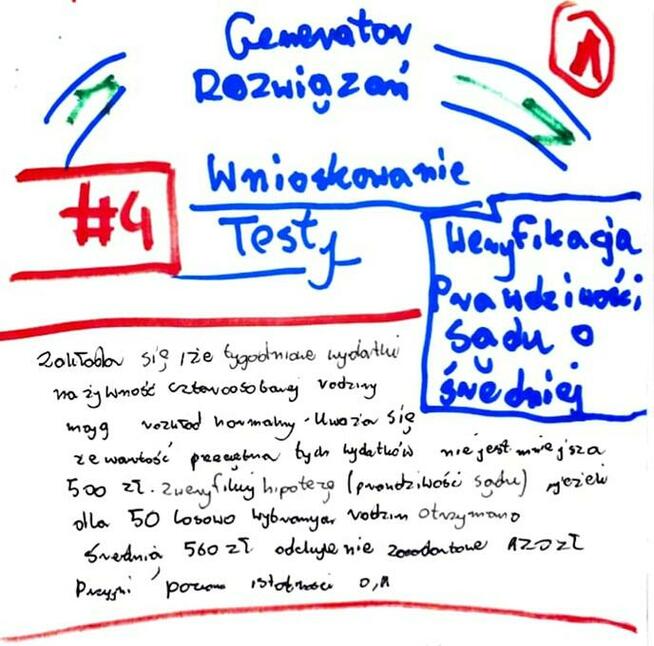 Generator
Rozwiązań
1
#4
Wnioskowanie
Testy
Weryfikacja
Prawdziwości
sądu o
średniej
Zakłada się że tygodniowe wydatki
na żywność czteroosobowej rodziny
mają rozkład normalny. Uważa się
że wartość przeciętna tych wydatków nie jest mniejsza
500 zł. Zweryfikuj hipotezę (prawdziwość sądu) jeżeli
dla 50 losowo wybranych rodzin otrzymano
średnią 560 zł odchylenie 120 zł
Przyjmij poziom istotności 0,1